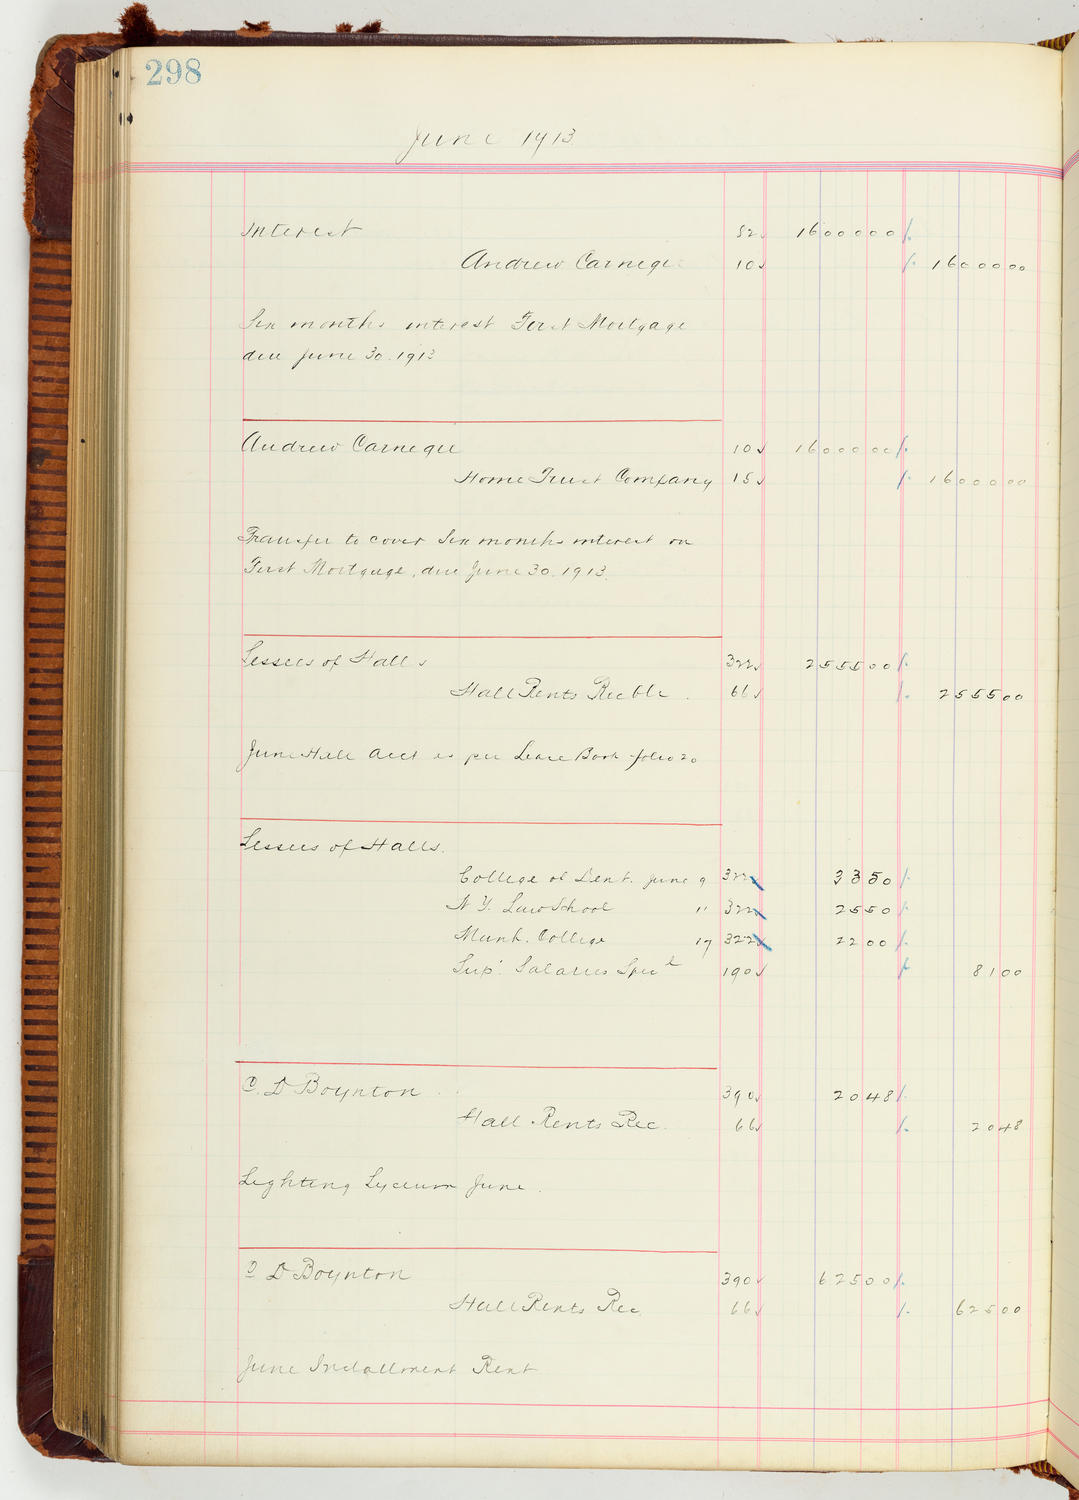 298
June 1913
Interest 52 1600000
Andrew Carnegie 10 1600000
Six months interest First Mortgage
due June 30. 1913
Andrew Carnegie 10 1600000
Home Trust Company 15 1600000
Transfer to cover Six months interest on
First Mortgage, due June 30. 1913.
Lessees of Halls 322 255500
Hall Rents Recble. 66 255500
June Hall acct as per Lease Book folio 20
Lessees of Halls.
College of Dent. June 9 322 3350
N.Y. Law School " 322 2550
Manh. College 17 322 2200
Sup. Salaries Specl 190 8100
C. D Boynton 390 2048
Hall Rents Rec. 66 2048
Lighting Lyceum June.
C D Boynton 390 62500
Hall Rents Rec. 66 62500
June Installment Rent